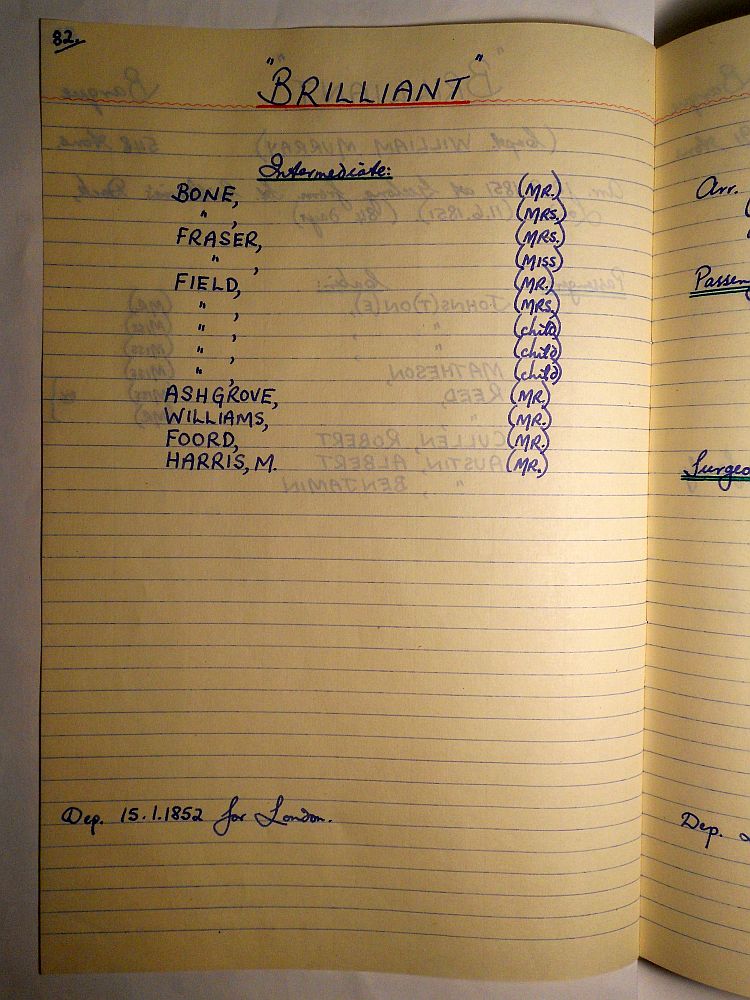 82.
"BRILLIANT"
Intermediate:
BONE, (MR.)
" , (MRS.)
FRASER, (MRS.)
" , (MISS)
FIELD, (MR.)
" , (MRS.)
" , (child)
" , (child)
" , (child)
ASHGROVE, (MR.)
WILLIAMS, (MR.)
FOORD, (MR.)
HARRIS, M. (MR.)
Dep. 15.1.1852 for London.
Arr.
Dep.